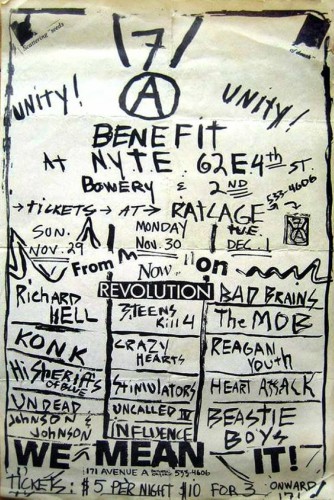 Scattering seeds
171
of dissent
UNITY!
UNITY!
A
BENEFIT
AT N.Y.T.E. 62 E. 4th ST.
BOWERY & 2ND
→TICKETS→ AT→ RATCAGE 533-4606
SUN. NOV. 29
MONDAY NOV. 30
TUE. DEC. 1
From Now on
REVOLUTION
RICHARD HELL
KONK
HI SHERIFFS OF BLUE
UNDEAD
JOHNSON & JOHNSON
3 TEENS KILL 4
CRAZY HEARTS
STIMULATORS
UNCALLED IV
INFLUENCE
BAD BRAINS
The MOB
REAGAN YOUTH
HEART ATTACK
BEASTIE BOYS
WE MEAN IT!
171 AVENUE A 533-4606
TICKETS: $5 PER NIGHT $10 FOR 3 ONWARD